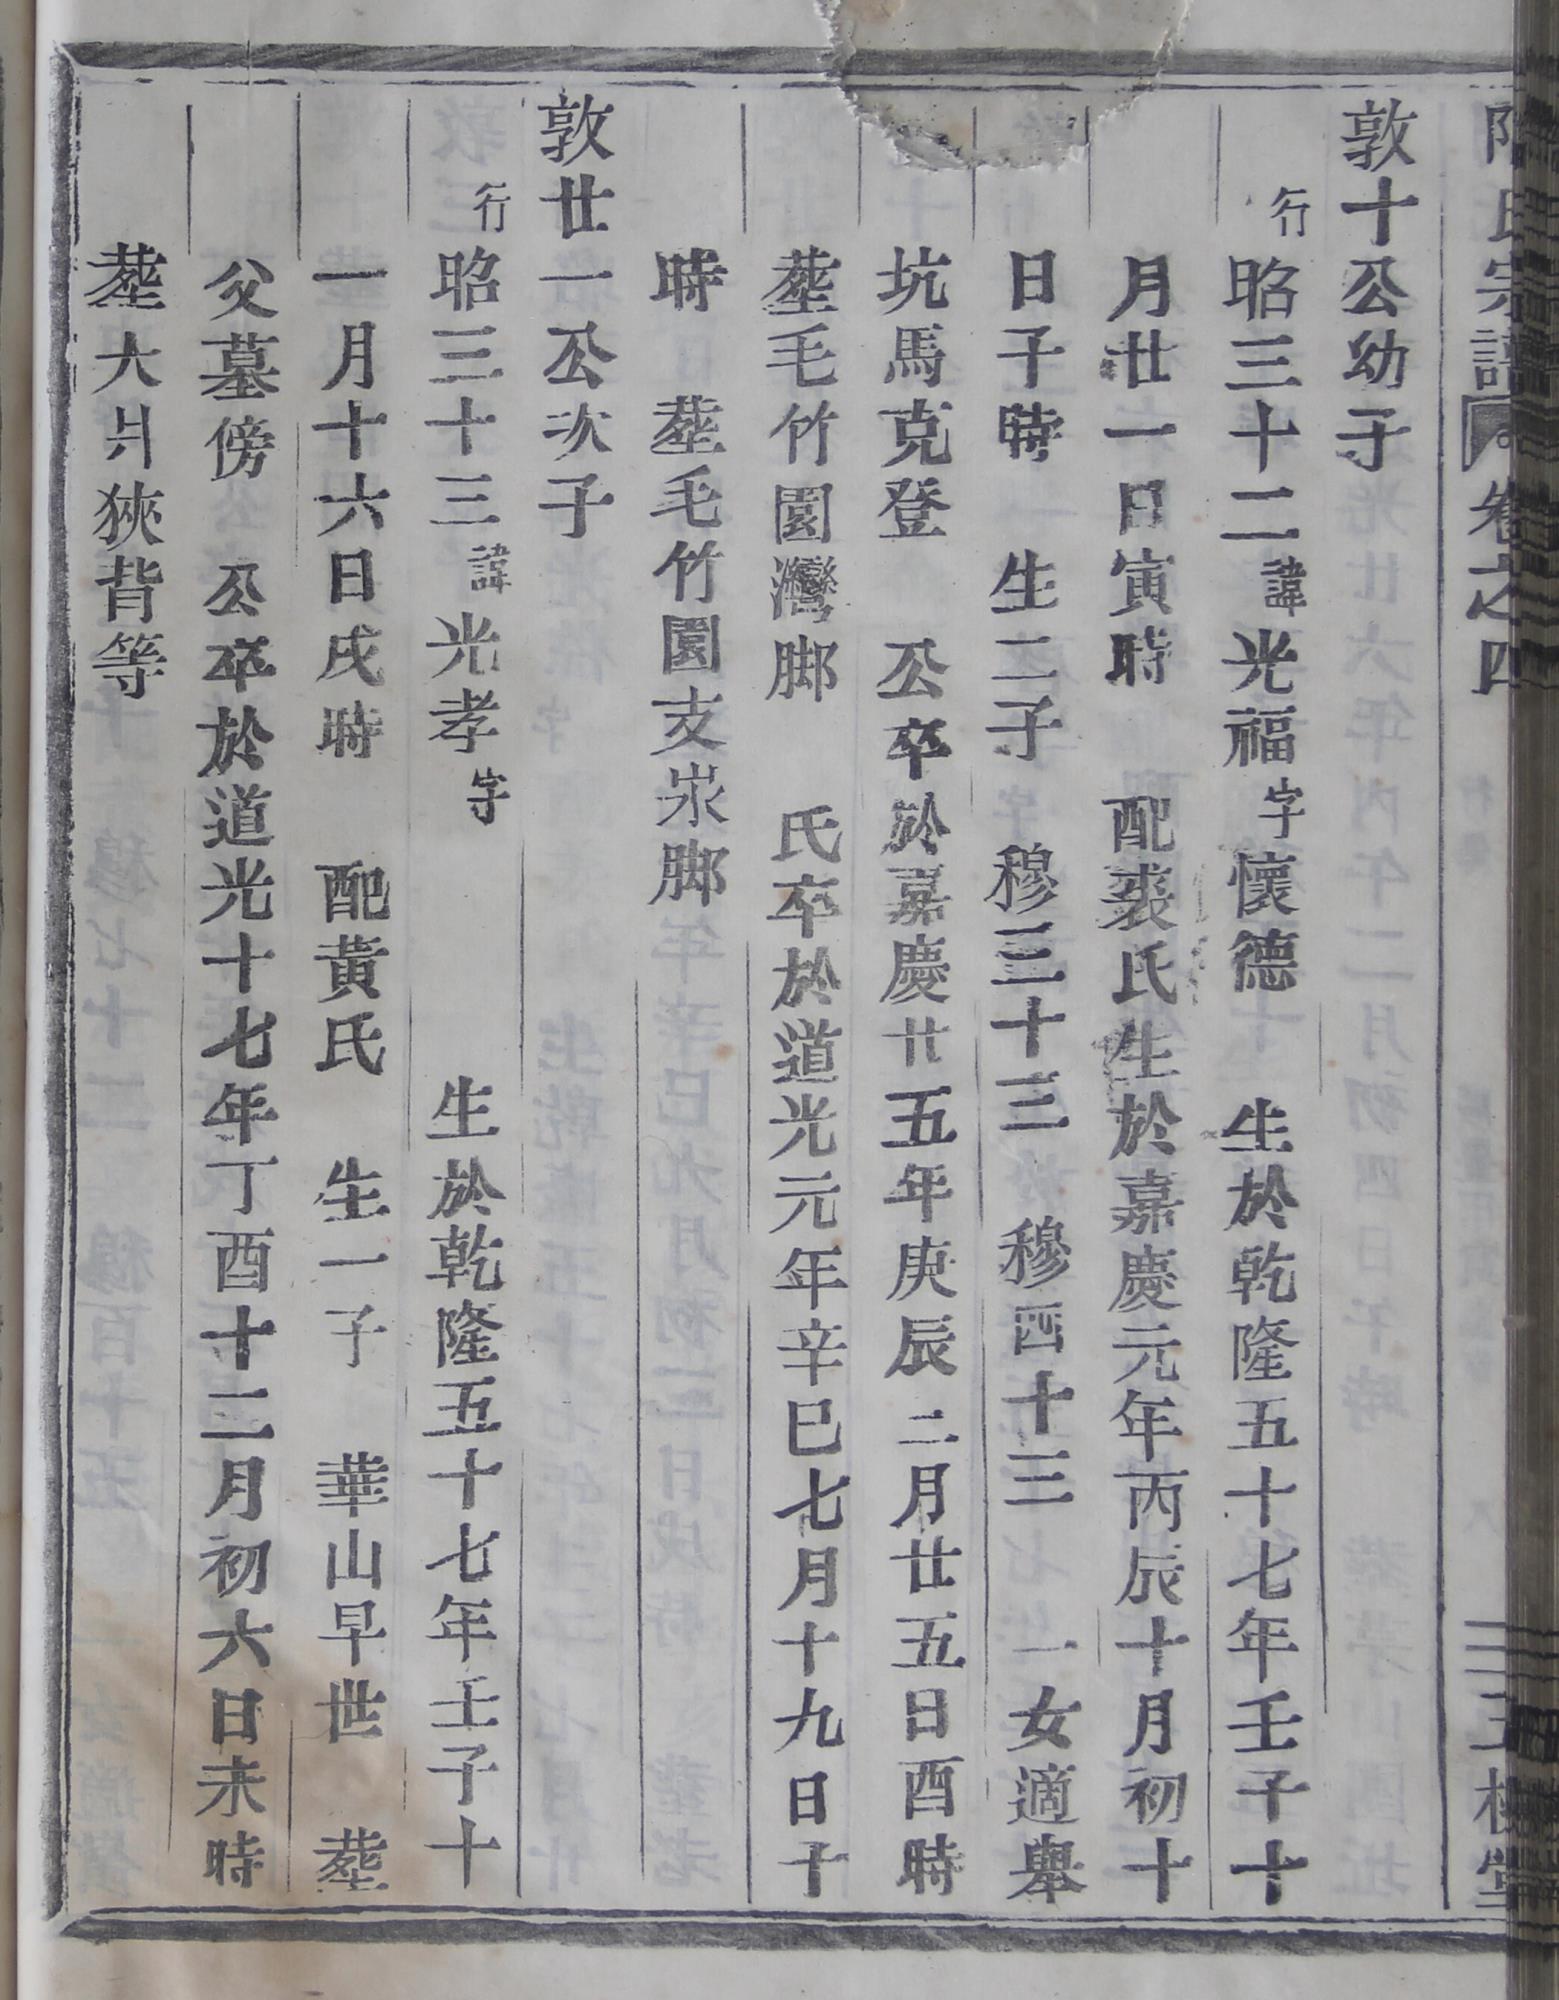 氏宗譜 卷之四
敦十公幼子
行昭三十二諱光福字懷德 生於乾隆五十七年壬子十
月廿一日寅時 配裘氏生於嘉慶元年丙辰十月初十
日子時 生二子 穆三十三 穆四十三 一女適舉
坑馬克登 公卒於嘉慶廿五年庚辰二月廿五日酉時
塟毛竹園灣脚 氏卒於道光元年辛巳七月十九日十
時 塟毛竹園支㟇脚
敦廿一公次子
行昭三十三諱光孝字 生於乾隆五十七年壬子十
一月十六日戌時 配黃氏 生一子 華山早世 塟
父墓傍 公卒於道光十七年丁酉十二月初六日未時
塟大爿狹背等